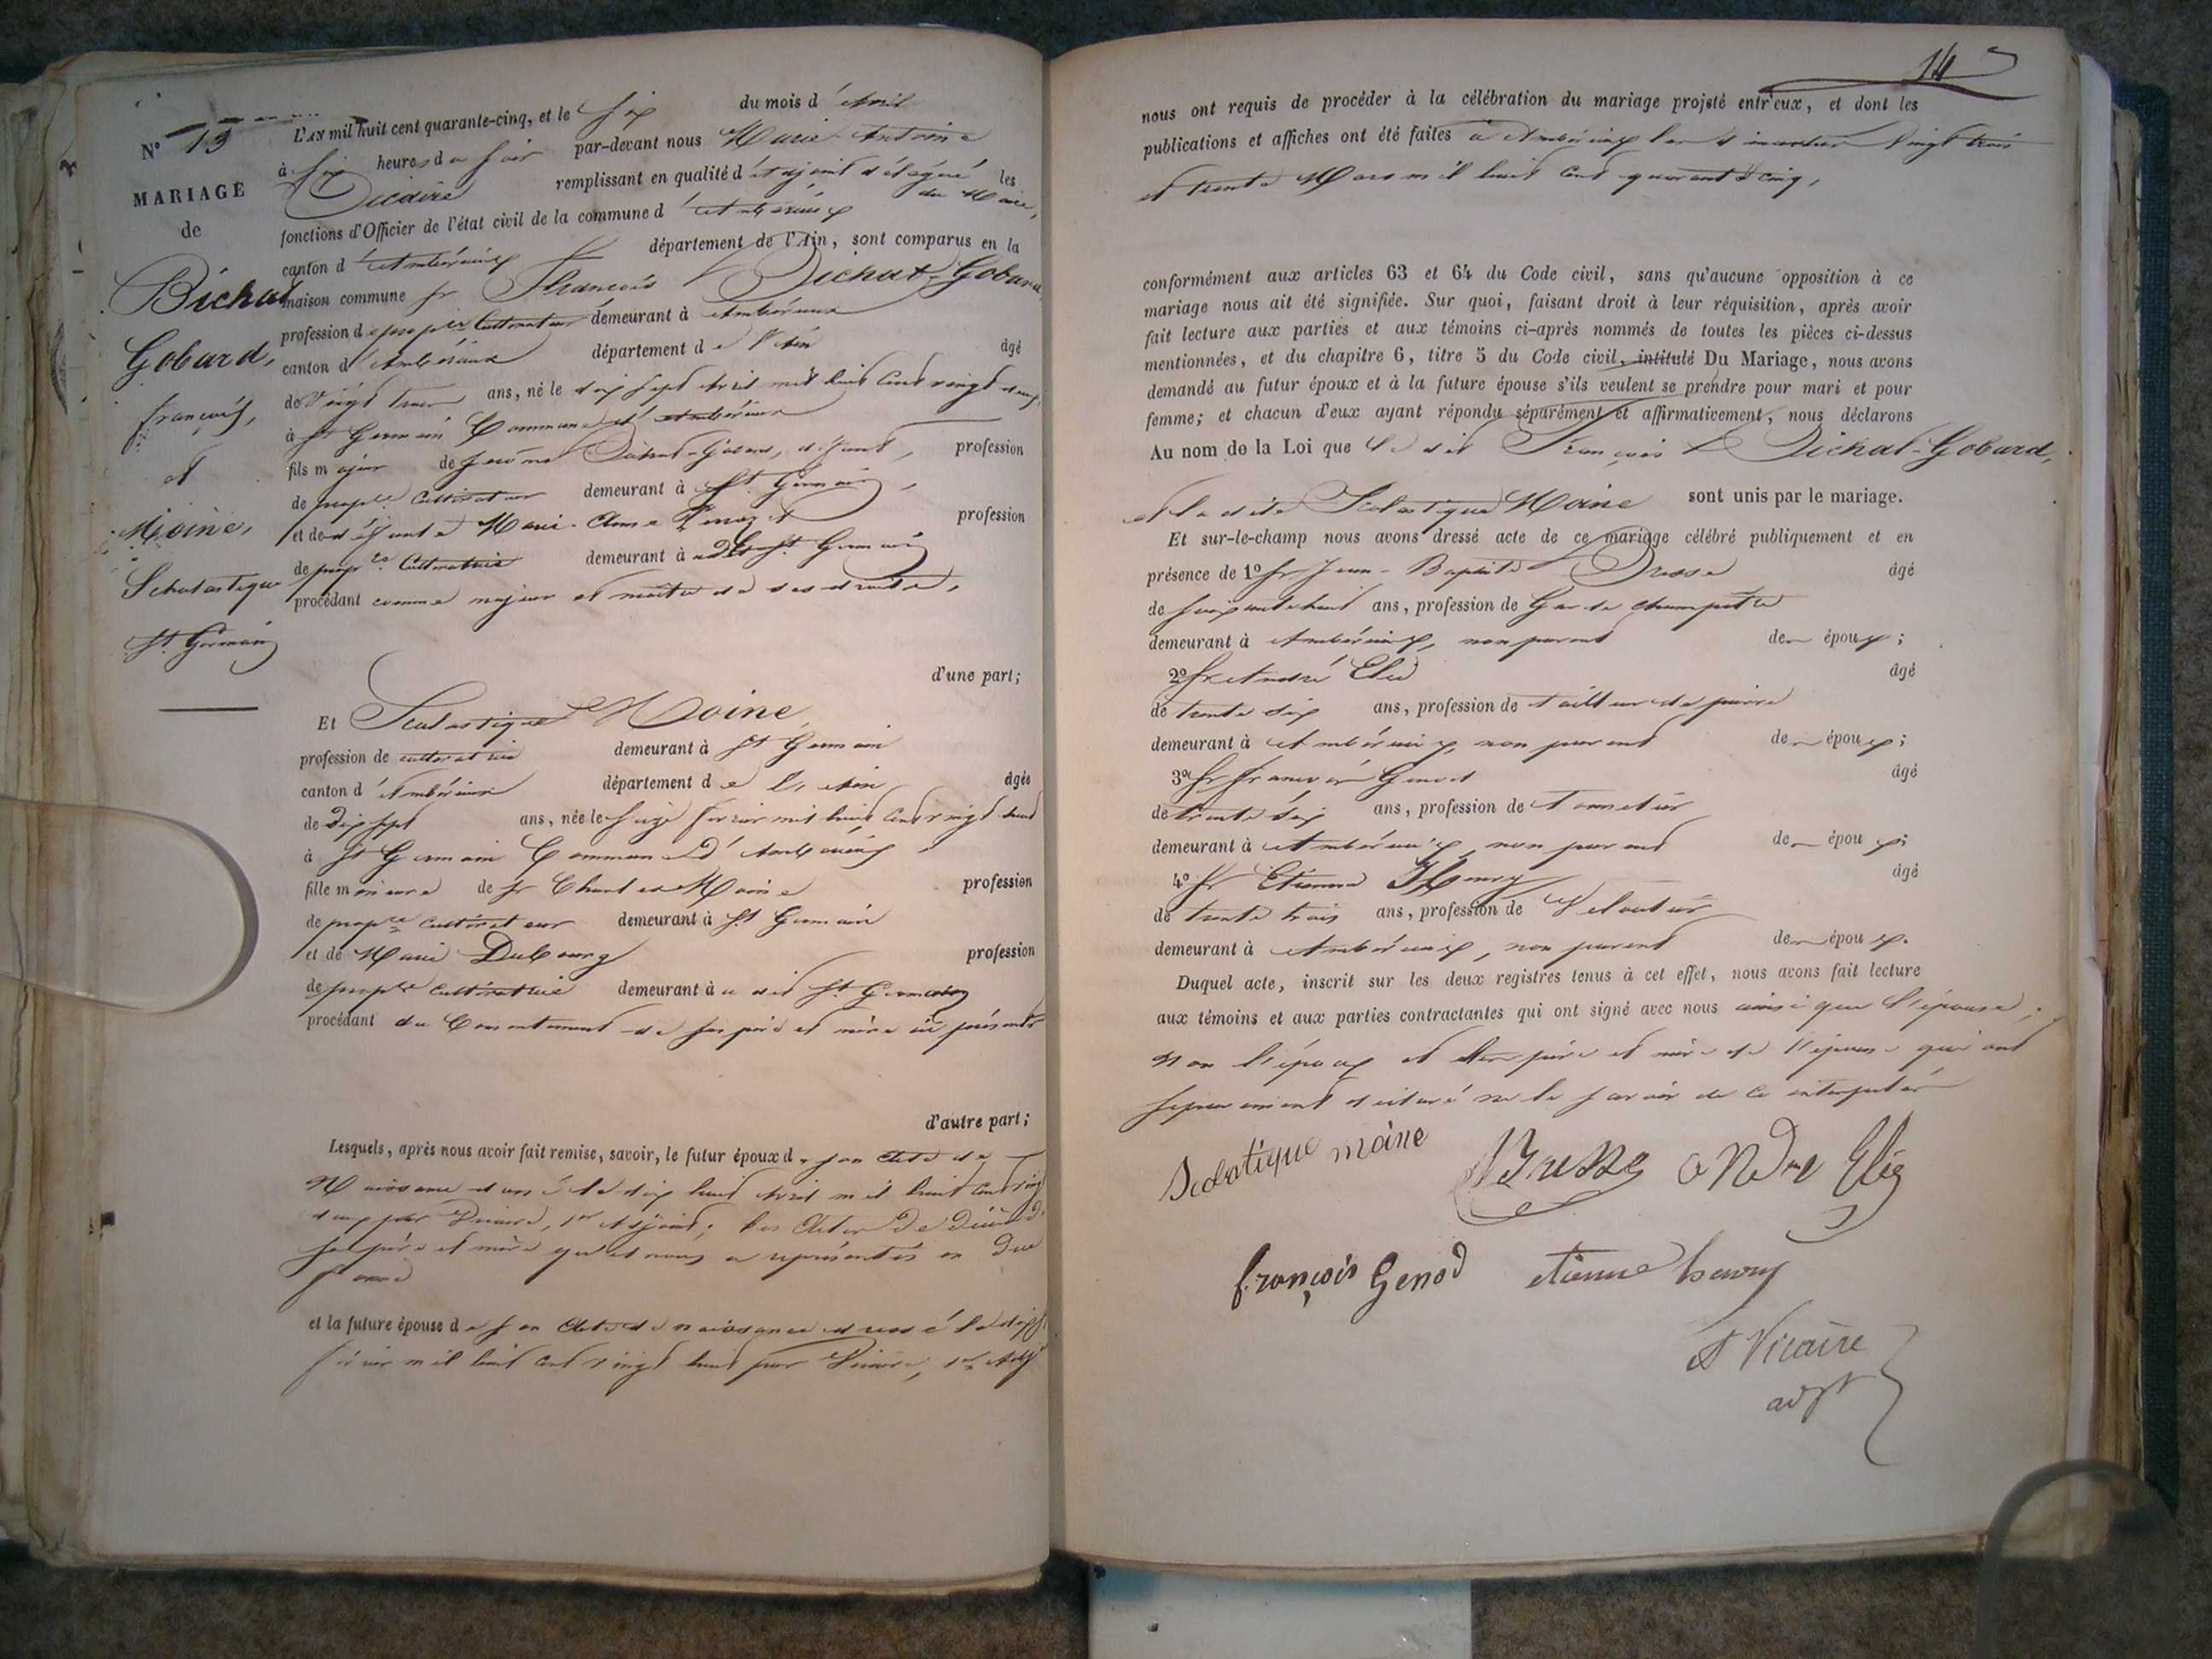 N° 13
MARIAGE
de
Bichat
Gobard,
françois,
et
Moine,
Scholastique
St Germain
L'AN mil huit cent quarante-cinq, et le six du mois d'Avril
à six heures du soir par-devant nous Marie-Antoine
Vicaire remplissant en qualité d'adjoint délégué du Maire, les
fonctions d'Officier de l'état civil de la commune d'Ambérieux
canton d'Ambérieux département de l'Ain, sont comparus en la
maison commune sr François Bichat-Gobard
profession de propre Cultivateur demeurant à Ambérieux
canton d'Ambérieux département de l'Ain âgé
de Vingt trois ans, né le dix sept Avril mil huit cent vingt deux
à St Germain Commune d'Ambérieux
fils majeur de Jérôme Bichat-Gobard, défunt, profession
de propre Cultivateur demeurant à St Germain,
et de défunte Marie-Anne profession
de propre Cultivatrice demeurant à St Germain
procédant comme majeur et maître de ses droits,
d'une part;
Et Scolastique Moine
profession de cultivatrice demeurant à St Germain
canton d'Ambérieux département de l'Ain âgée
de dix sept ans, née le seize février mil huit cent vingt huit
à St Germain Commune d'Ambérieux
fille mineure de sr Charles Moine profession
de propre cultivateur demeurant à St Germain
et de Marie Dubourg profession
de propre cultivatrice demeurant à u dit St Germain
procédant du Consentement de ses père et mère ici présents
d'autre part;
Lesquels, après nous avoir fait remise, savoir, le futur époux de son Acte de
Naissance dressé le dix huit Avril mil huit cent vingt
deux par Vicaire, 1er Adjoint; les Actes de Décès de
ses père et mère qu'il nous a représentés en due
forme
et la future épouse de son Acte de naissance dressé le dix sept
février mil huit cent vingt huit par Vicaire, 1er Adjt
14
nous ont requis de procéder à la célébration du mariage projeté entr'eux, et dont les
publications et affiches ont été faites à Ambérieux les dimanches Vingt trois
et trente Mars mil huit cent quarante cinq,
conformément aux articles 63 et 64 du Code civil, sans qu'aucune opposition à ce
mariage nous ait été signifiée. Sur quoi, faisant droit à leur réquisition, après avoir
fait lecture aux parties et aux témoins ci-après nommés de toutes les pièces ci-dessus
mentionnées, et du chapitre 6, titre 5 du Code civil, intitulé Du Mariage, nous avons
demandé au futur époux et à la future épouse s'ils veulent se prendre pour mari et pour
femme; et chacun d'eux ayant répondu séparément et affirmativement, nous déclarons
Au nom de la Loi que le dit François Bichat-Gobard,
et la dite Scolastique Moine sont unis par le mariage.
Et sur-le-champ nous avons dressé acte de ce mariage célébré publiquement et en
présence de 1° sr Jean-Baptiste Brosse âgé
de soixante huit ans, profession de Garde champêtre
demeurant à Ambérieux, non parent de époux;
2° sr André Elie âgé
de trente six ans, profession de tailleur de pierre
demeurant à Ambérieux, non parent de époux;
3° sr François Genod âgé
de trente six ans, profession de
demeurant à Ambérieux, non parent de époux;
4° sr Etienne Henry âgé
de trente trois ans, profession de
demeurant à Ambérieux, non parent de époux.
Duquel acte, inscrit sur les deux registres tenus à cet effet, nous avons fait lecture
aux témoins et aux parties contractantes qui ont signé avec nous ainsi que l'épouse,
Non l'époux et les père et mère de l'épouse qui ont
séparément déclaré ne le savoir de ce interpelés
Scolastique moine
andre Elie
françois Genod etienne henry
A Vicaire
adjt